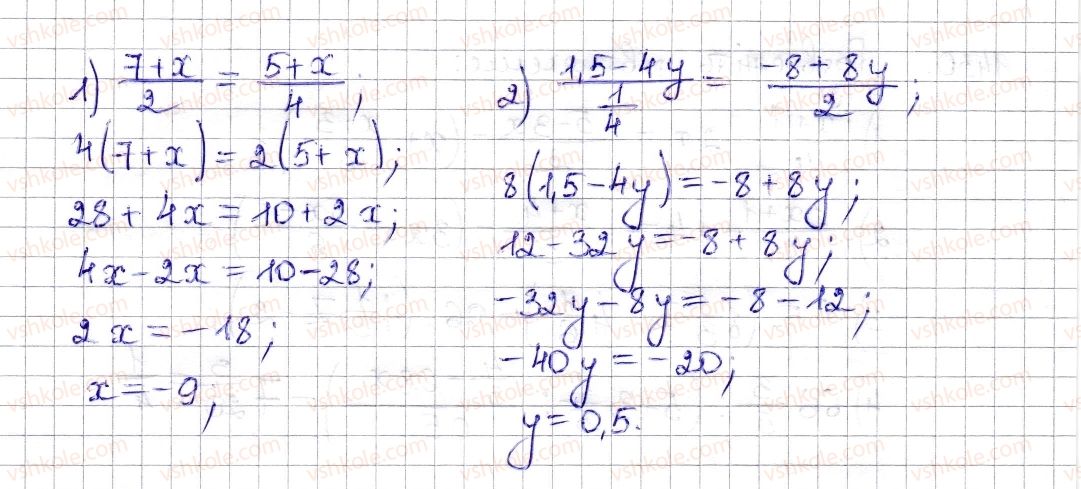 1) (7+x)/2 = (5+x)/4;
4(7+x)=2(5+x);
28+4x=10+2x;
4x-2x=10-28;
2x=-18;
x=-9;
2) (1,5-4y)/(1/4) = (-8+8y)/2;
8(1,5-4y)=-8+8y;
12-32y=-8+8y;
-32y-8y=-8-12;
-40y=-20;
y=0,5.
vshkole.com